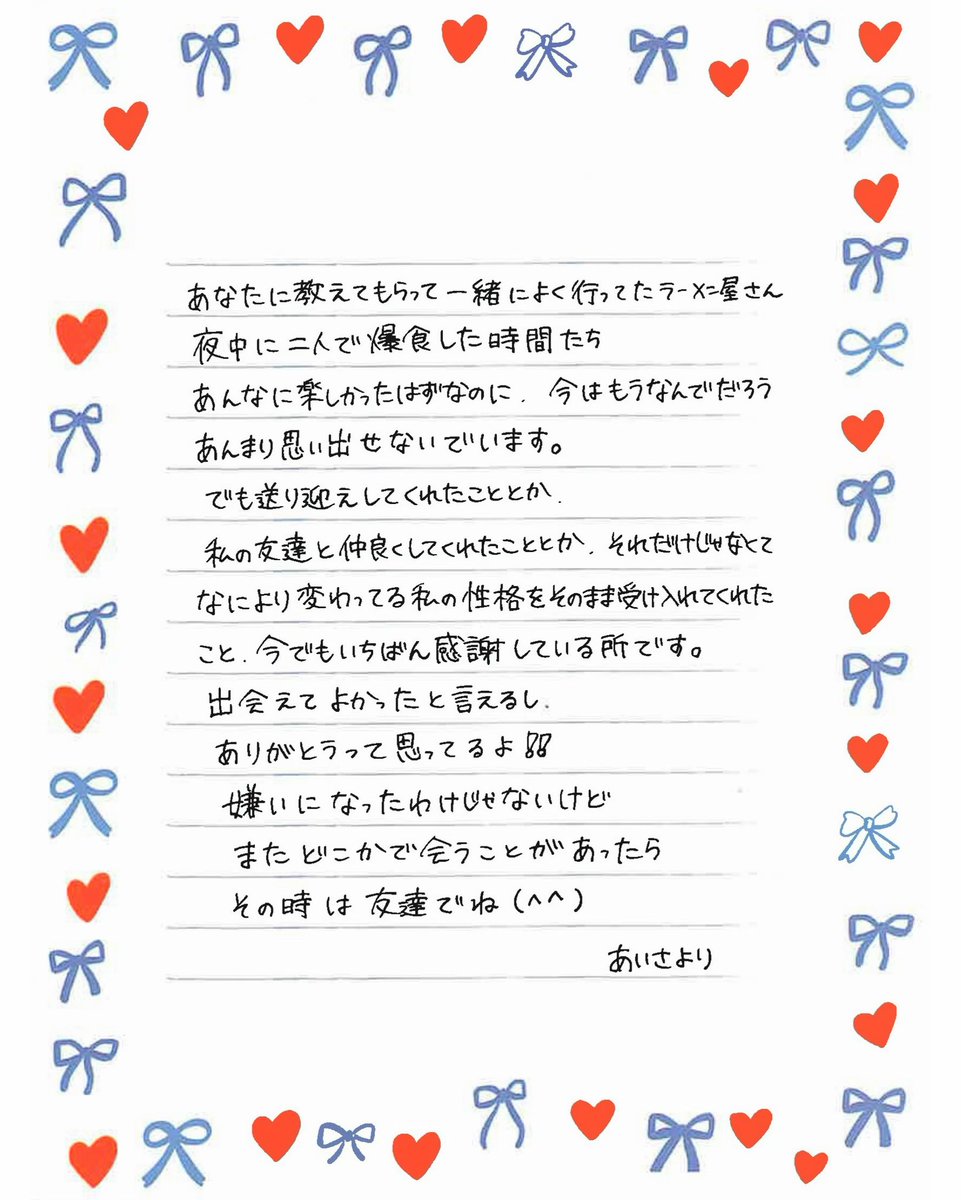 あなたに教えてもらって一緒によく行ってたラーメン屋さん
夜中に二人で爆食した時間たち
あんなに楽しかったはずなのに、今はもうなんでだろう
あんまり思い出せないでいます。
でも送り迎えしてくれたこととか、
私の友達と仲良くしてくれたこととか、それだけじゃなくて
なにより変わってる私の性格をそのまま受け入れてくれた
こと、今でもいちばん感謝している所です。
出会えてよかったと言えるし、
ありがとうって思ってるよ!!
嫌いになったわけじゃないけど
またどこかで会うことがあったら
その時は友達でね(^^)
あいさより